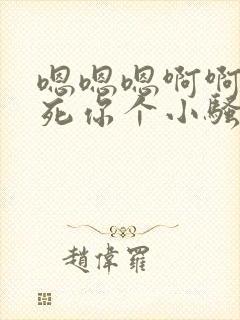 嗯嗯嗯啊啊
死你个小骚
趙偉羅